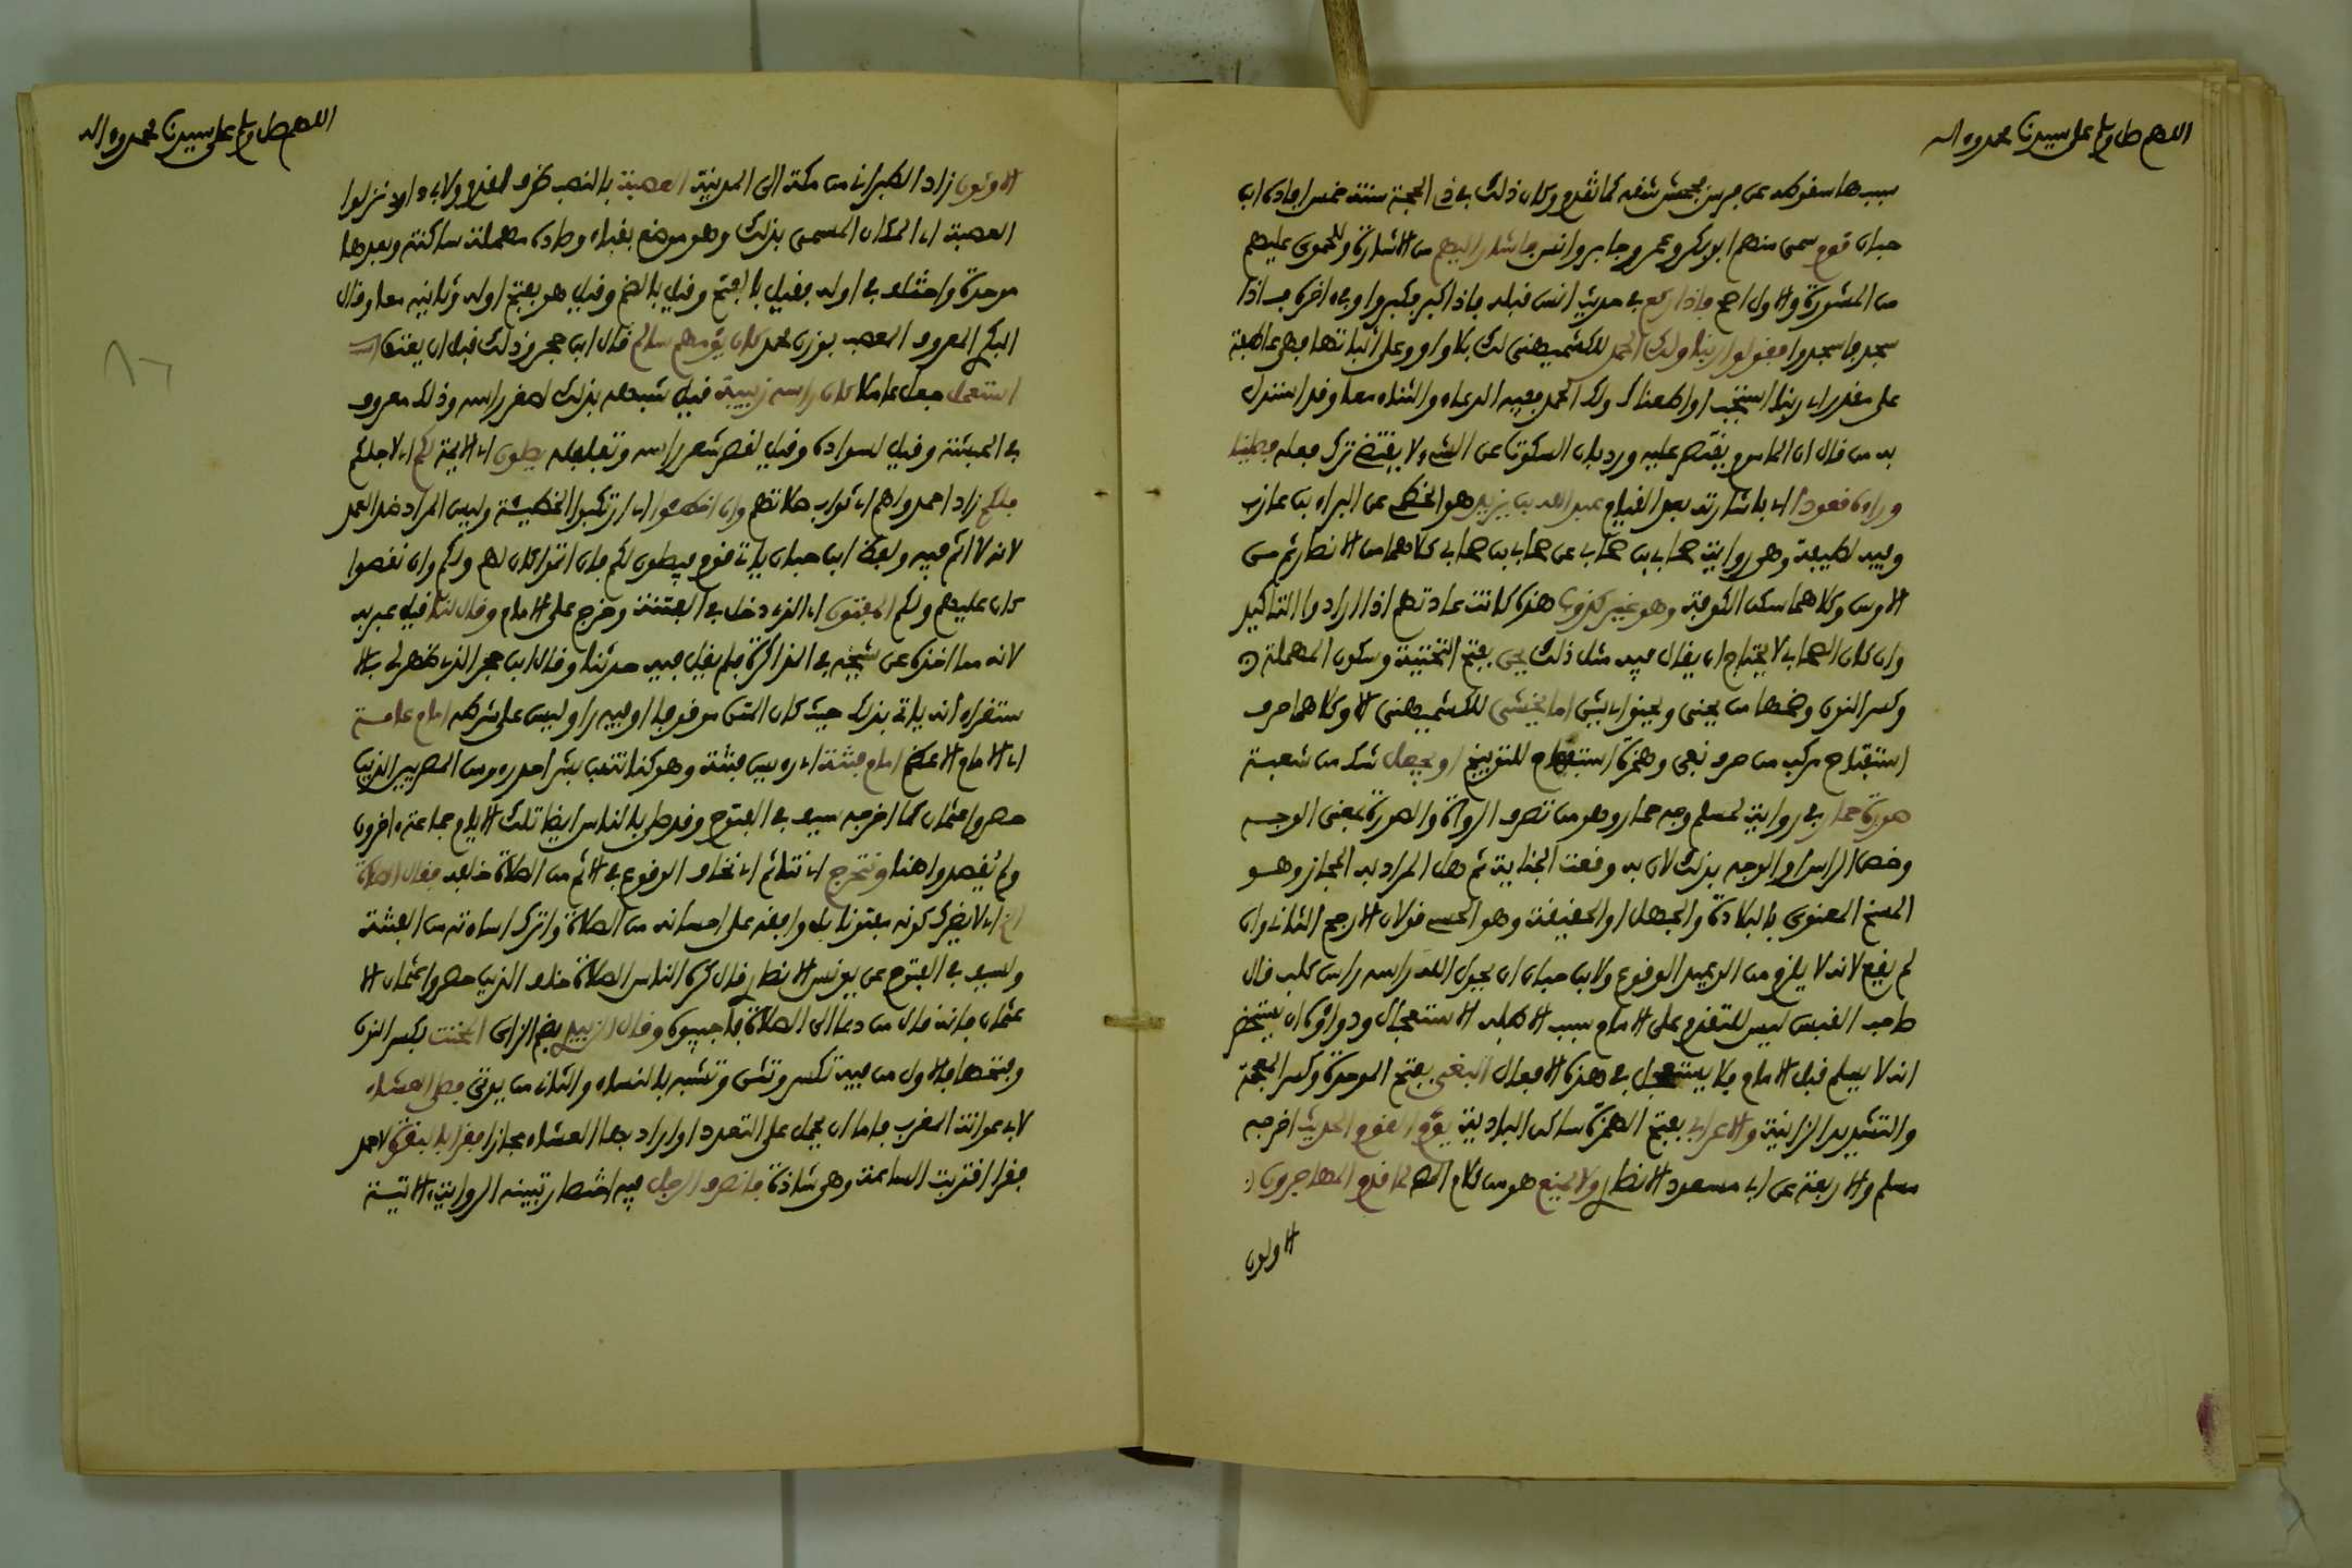 اللهم صل وسلم على سيدنا محمد وءاله
سببها سقوطه عن فرس فجحش شقه كما تقدم وكان ذلك في ذي الحجة سنة خمس افاده ابن
حبان قوم سمي منهم ابو بكر وعمر وجابر وانس فاشار اليهم من الاشارة وللحموي عليهم
من المشورة والاول اصح فاذا ركع في حديث انس قبله فاذا كبر فكبروا وفي اخره فاذا
سجد فاسجدوا فقولوا ربنا ولك الحمد للكشميهني لك بلا واو وعلى اثباتها فهي عاطفة
على مقدر اي ربنا استجب او اطعناك ولك الحمد ففيه الدعاء والثناء معا وقد استدل
به من قال ان الماموم يقتصر عليه ورد بان السكوت عن الشيء لا يقتضي ترك فعله فصلينا
وراءه قعودا اي باشارته بعد القيام عبد الله بن يزيد هو الخطمي عن البراء بن عازب
وفيه لطيفة وهو رواية صحابي بن صحابي عن صحابي بن صحابي كلاهما من الانصار ثم من
الاوس وكلاهما سكن الكوفة وهو غير كذوب هذه كانت عادتهم اذا ارادوا التاكيد
وان كان الصحابي لا يحتاج ان يقال فيه مثل ذلك يحن بفتح التحتية وسكون المهملة
وكسر النون وضمها من يحني ويحنو اي يثني اما يخشى للكشميهني الا وكلاهما حرف
استفتاح مركب من حرف نفي وهمزة استفهام للتوبيخ او يجعل شك من شعبة
صورة حمار في رواية لمسلم وجه حمار وهو من تصرف الرواة والصورة بمعنى الوجه
وخص الراس او الوجه بذلك لان به وقعت الجناية ثم هل المراد به المجاز وهو
المسخ المعنوي بالبلادة والجهل او الحقيقة وهو الحسي قولان الارجح الثاني وان
لم يقع لانه لا يلزم من الوعيد الوقوع ولابن حبان ان يحول الله راسه راس كلب قال
صاحب القبس ليس للتقدم على الامام سبب الا طلب الاستعجال ودواؤه ان يستحضر
انه لا يسلم قبل الامام فلا يستعجل في هذه الافعال البغي بفتح الموحدة وكسر المعجمة
والتشديد الزانية والاعرابي بفتح الهمزة ساكن البادية يؤم القوم الحديث اخرجه
مسلم والاربعة عن ابي مسعود الانصاري ولا يمنع هو من كلام المص لما قدم المهاجرون
الاولون
اللهم صل وسلم على سيدنا محمد وءاله
الاولون زاد الطبراني من مكة الى المدينة العصبة بالنصب ظرف لقدم ولابي داود نزلوا
العصبة اي المكان المسمى بذلك وهو موضع بقباء وصاده مهملة ساكنة وبعدها
موحدة واختلف في اوله فقيل بالفتح وقيل بالضم وقيل هو بفتح اوله وثانيه معا وقال
البكري المعروف المعصب بوزن محمد كان يؤمهم سالم قال ابن حجر وذلك قبل ان يعتق
استعمل جعل عاملا كان راسه زبيبة قيل شبهه بذلك لصغر راسه وذلك معروف
في الحبشة وقيل لسواده وقيل لقصر شعر راسه وتفلفله يصلون اي الايمة لكم اي لاجلكم
فلكم زاد احمد ولهم اي ثواب صلاتهم وان اخطئوا اي ارتكبوا الخطيئة وليس المراد ضد العمد
لانه لا اثم فيه ولفظ ابن حبان ياتي قوم فيصلون لكم فان اتموا كان لهم ولكم وان نقصوا
كان عليهم ولكم المفتون اي الذي دخل في الفتنة وخرج على الامام وقال لنا قيل عبر به
لانه مما اخذه عن شيخه في المذاكرة فلم يقل فيه حدثنا وقال ابن حجر الذي ظهر لي بالا
ستقراء انه ياتي بذلك حيث كان المتن موقوفا او فيه راو ليس على شرطه امام عامة
اي الامام الاعظم امام فتنة اي رءيس فتنة وهو كنانة بن بشر احد رءوس المصريين الذين
حصروا عثمان كما اخرجه سيف في الفتوح وقد صلى بالناس ايضا تلك الايام جماعة ءاخرون
ولم يقصدوا هنا ونتحرج اي نتاثم اي نخاف الوقوع في الاثم من الصلاة خلفه فقال الصلاة
الخ اي لا يضرك كونه مفتونا بل وافقه على احسانه من الصلاة واترك اساءته من الفتنة
ولسيف في الفتوح عن يونس الانصاري قال كره الناس الصلاة خلف الذين حصروا عثمان الا
عثمان فانه قال من دعا الى الصلاة فاجيبوه وقال الزبيدي بضم الزاي المخنث بكسر النون
وفتحها فالاول من فيه تكسر وتثن وتشبه بالنساء والثاني من يوتى فصلى العشاء
لابي عوانة المغرب فاما ان يحمل على التعدد او اراد بها العشاء مجازا فقرا بالبقرة لاحمد
فقرا اقتربت الساعة وهي شاذة فانصرف الرجل فيه اختصار تبينه الرواية الاتية